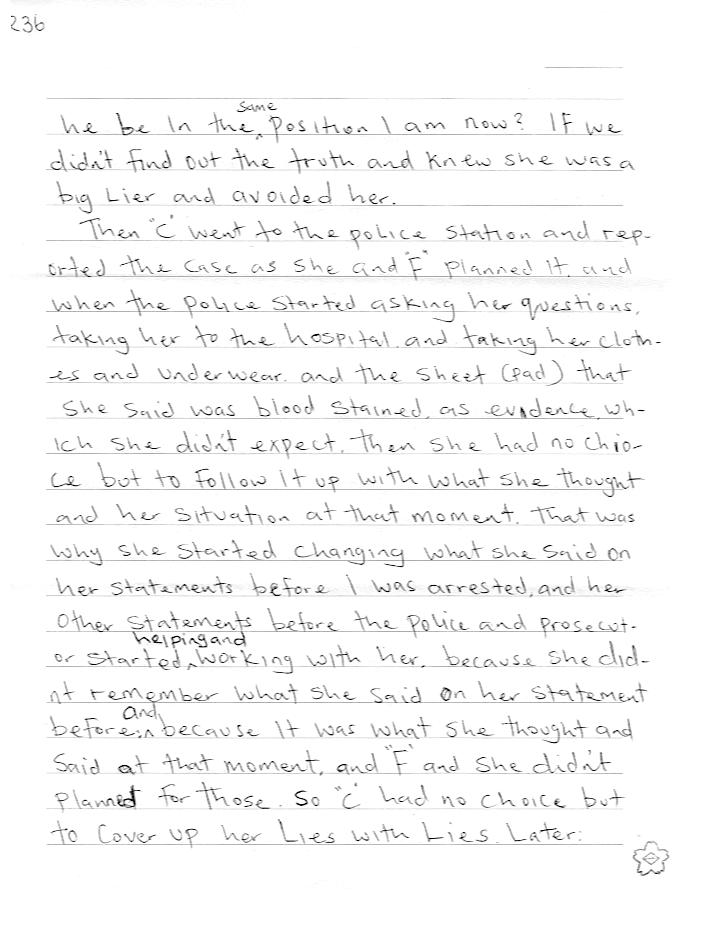 236
he be In the same Position I am now? If we
didn't find out the truth and knew she was a
big Lier and avoided her.
Then "C" went to the police station and rep-
orted the case as she and "F" planned It. and
when the police started asking her questions,
taking her to the hospital. and taking her cloth-
es and underwear. and the sheet (pad) that
she said was blood stained, as evidence, wh-
ich she didn't expect. Then she had no chio-
ce but to follow It up with what she thought
and her situation at that moment. That was
why she started changing what she said on
her statements before I was arrested, and her
other statements before the police and prosecut-
or started helping and working with her. because she did-
nt remember what she said on her statement
before, and in because It was what she thought and
said at that moment, and "F" and she didn't
planned for those. So "C" had no choice but
to cover up her Lies with Lies. Later: